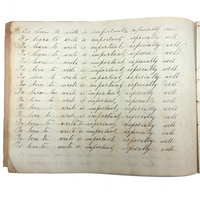 To learn to write is important, especially well.
To learn to write is important, especially well.
To learn to write is important, especially well.
To learn to write is important, especially well.
To learn to write is important, especially well.
To learn to write is important, especially well.
To learn to write is important, especially well.
To learn to write is important, especially well.
To learn to write is important, especially well.
To learn to write is important, especially well.
To learn to write is important, especially well.
To learn to write is important, especially well.
To learn to write is important, especially well.
To learn to write is important, especially well.